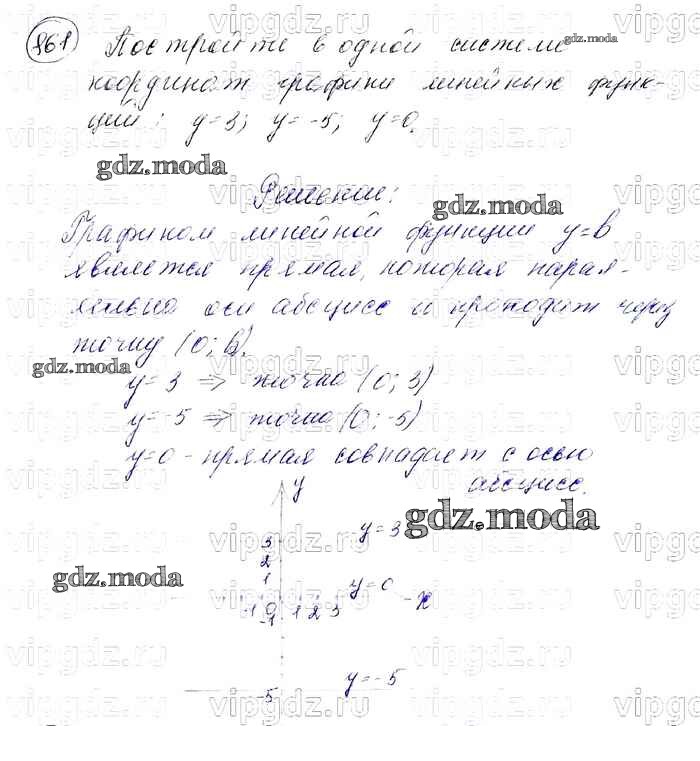 861 Постройте в одной системе
координат графики линейных функ-
ций: y=3; y=-5; y=0.
Решение:
Графиком линейной функции y=b
является прямая, которая парал-
лельна оси абсцисс и проходит через
точку (0; b).
y=3 => точка (0; 3)
y=-5 => точка (0; -5)
y=0 - прямая совпадает с осью
абсцисс.
y
y=3
3
2
1
y=0
-1 0 1 2 3 x
-1
y=-5
-5
gdz.moda
gdz.moda
gdz.moda
gdz.moda
gdz.moda
gdz.moda
vipgdz.ru